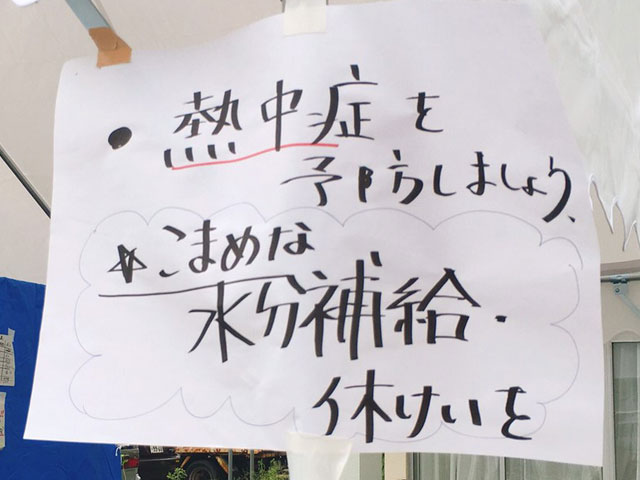 ● 熱中症を
予防しましょう、
☆こまめな
水分補給・
休けいを